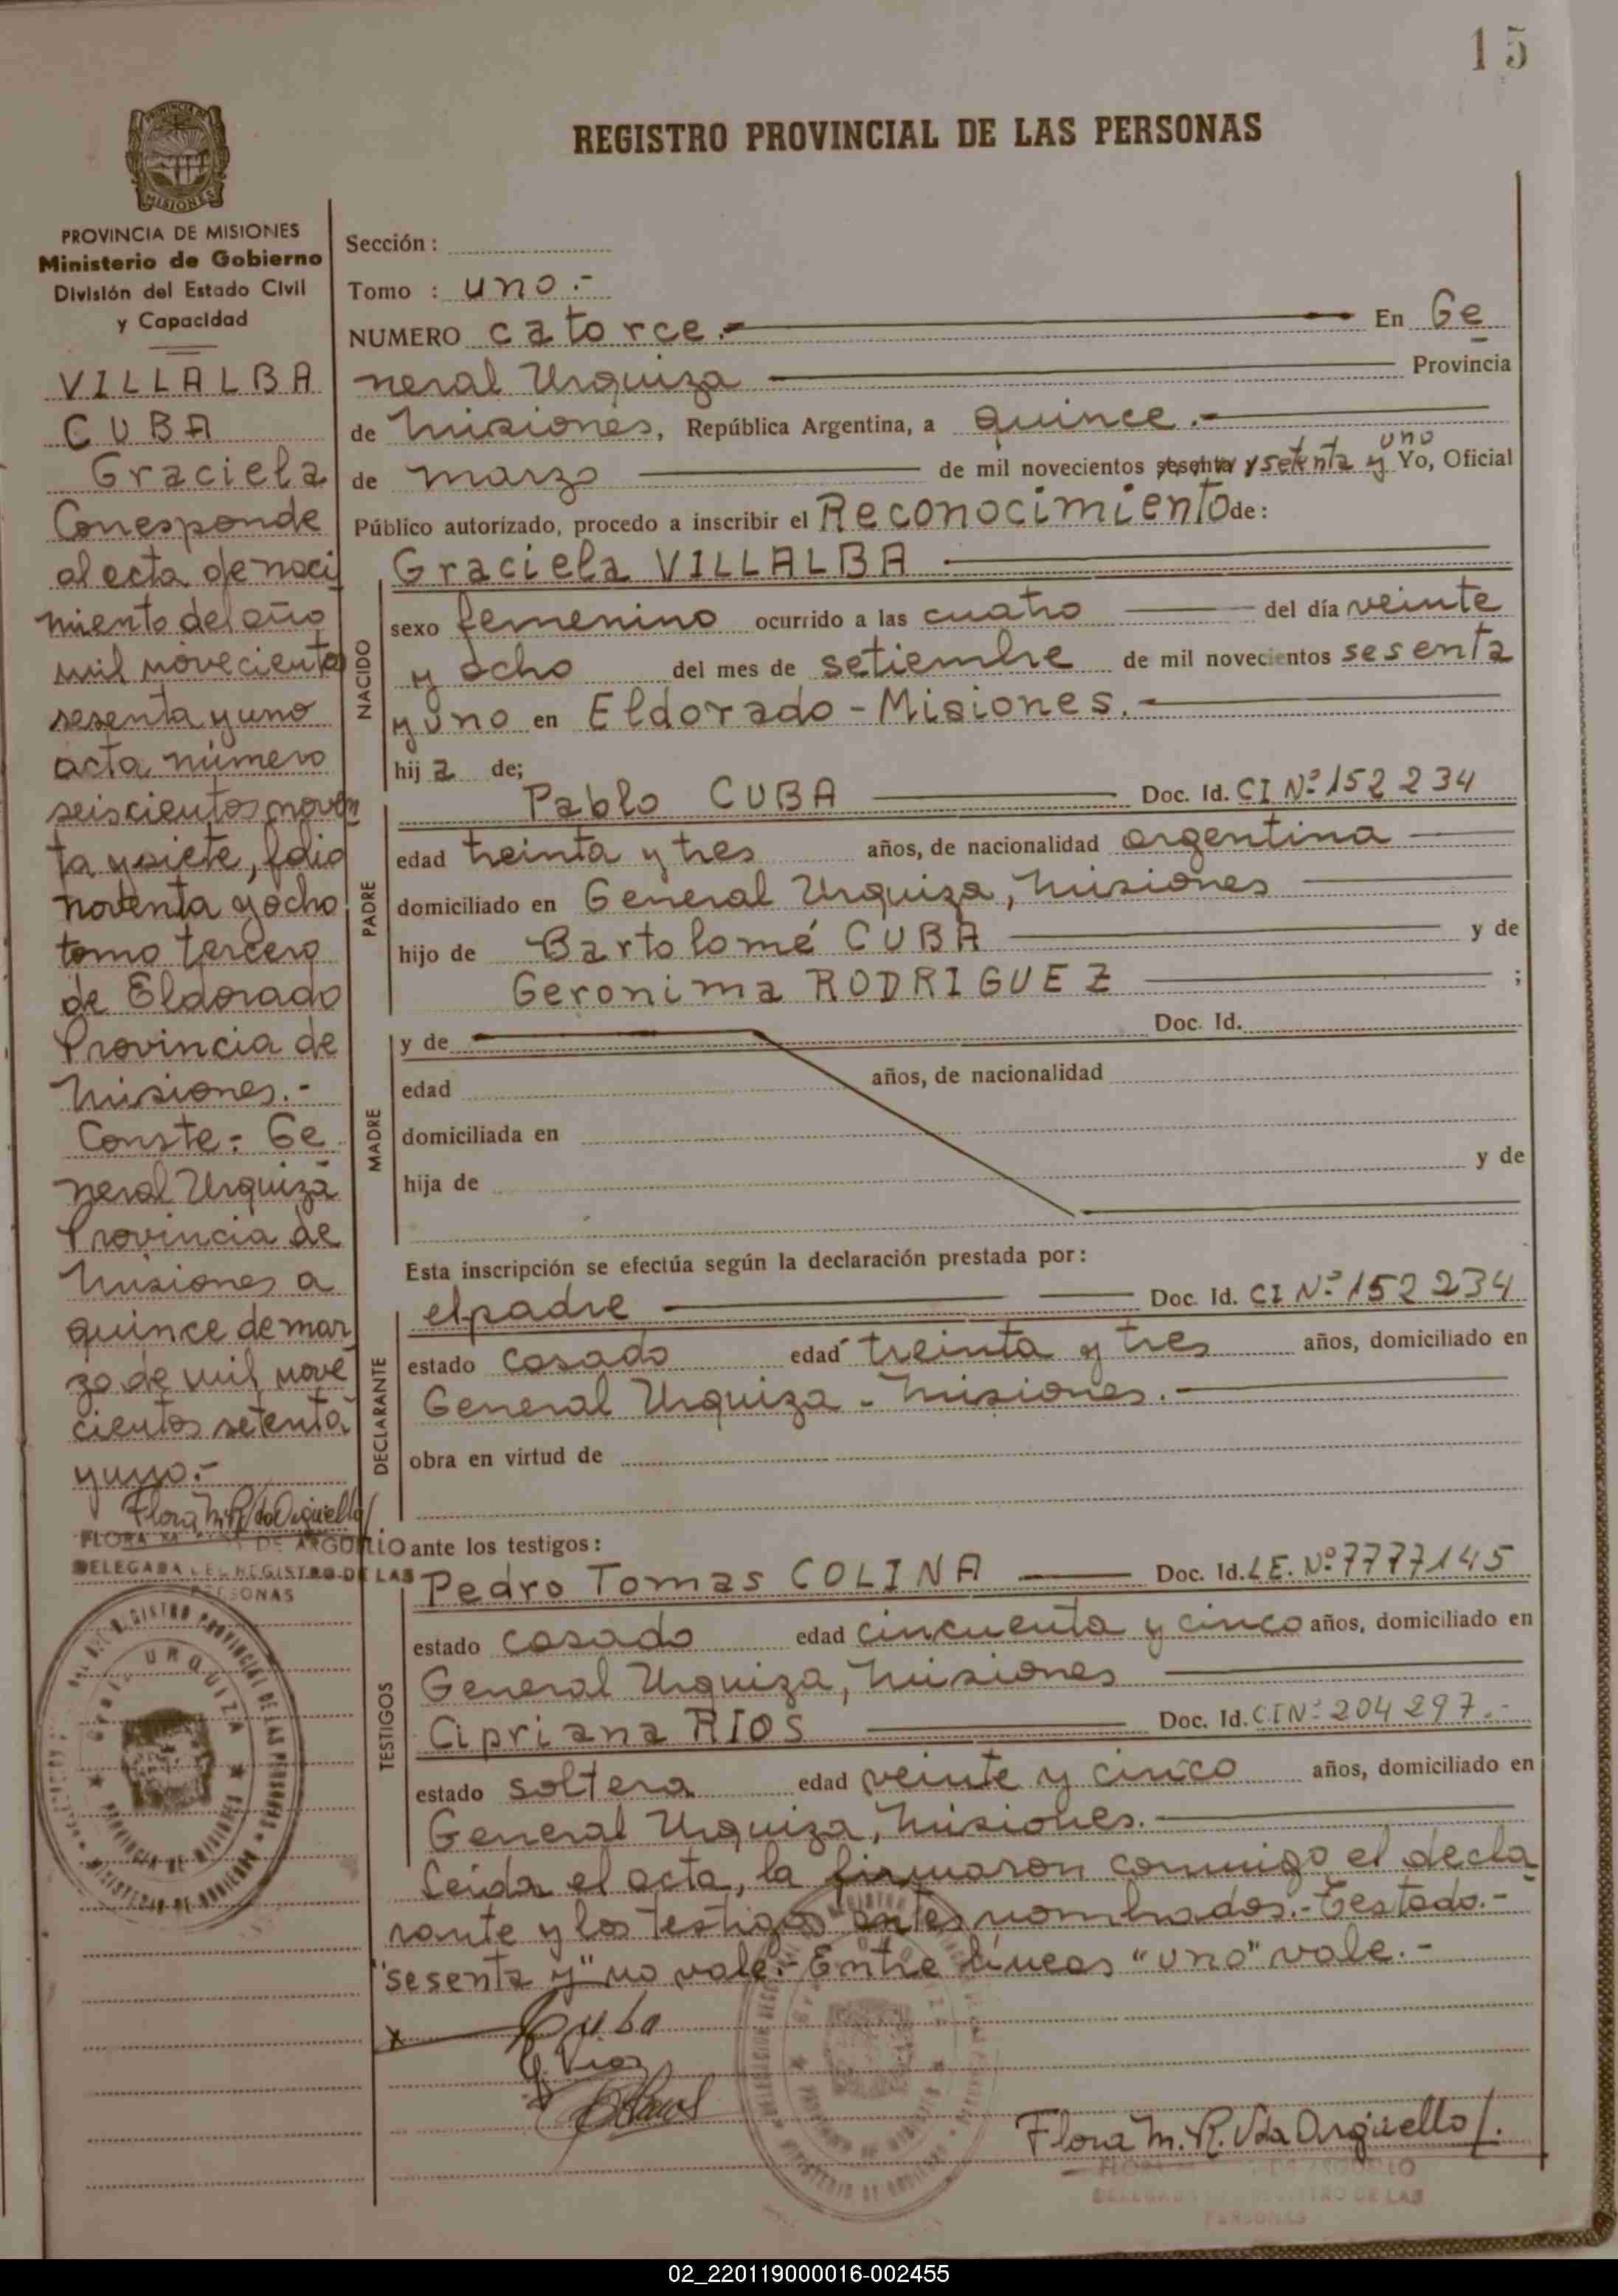 15
REGISTRO PROVINCIAL DE LAS PERSONAS
PROVINCIA DE
MISIONES
PROVINCIA DE MISIONES
Ministerio de Gobierno
División del Estado Civil
y Capacidad
VILLALBA
CUBA
Graciela
Corresponde
al acta de naci
miento del año
mil noveciento
sesenta y uno
acta número
seiscientos noven
ta y siete, folio
noventa y ocho
tomo tercero
de Eldorado
Provincia de
Misiones.-
Conste:- Ge
neral Urquiza
Provincia de
Misiones a
quince de mar
zo de mil nove
cientos setenta
y uno.-
Flora M. R. Vda Argüello
FLORA DE ARGÜELLO
DELEGADA DEL REGISTRO DE LAS
PERSONAS
Sección :
Tomo : uno.-
NUMERO catorce.- En Ge
neral Urquiza Provincia
de Misiones, República Argentina, a quince.-
uno
de marzo de mil novecientos sesenta y setenta y Yo, Oficial
Público autorizado, procedo a inscribir el Reconocimiento de:
NACIDO
Graciela VILLALBA
sexo femenino ocurrido a las cuatro del día veinte
y ocho del mes de setiembre de mil novecientos sesenta
y uno en Eldorado - Misiones.-
hija de;
PADRE
Pablo CUBA Doc. Id. CI Nº 152 234
edad treinta y tres años, de nacionalidad argentina
domiciliado en General Urquiza, Misiones
hijo de Bartolomé CUBA y de
Geronima RODRIGUEZ ;
MADRE
y de Doc. Id.
edad años, de nacionalidad
domiciliada en
hija de y de
Esta inscripción se efectúa según la declaración prestada por:
DECLARANTE
el padre Doc. Id. CI Nº 152 234
estado casado edad treinta y tres años, domiciliado en
General Urquiza - Misiones.-
obra en virtud de
ante los testigos:
TESTIGOS
Pedro Tomas COLINA Doc. Id. L.E. Nº 7777145
estado casado edad cincuenta y cinco años, domiciliado en
General Urquiza, Misiones
Cipriana RIOS Doc. Id. CI Nº 204 297.-
estado soltera edad veinte y cinco años, domiciliado en
General Urquiza, Misiones.-
Leída el acta, la firmaron conmigo el decla
rante y los testigos antes nombrados.- Testado.-
"sesenta y" no vale.- Entre líneas "uno" vale.-
x Cuba
Flora M. R. Vda Argüello
DE ARGÜELLO
DELEGADA DEL REGISTRO DE LAS
PERSONAS
URQUIZA
PROVINCIA DE MISIONES
02_220119000016-002455